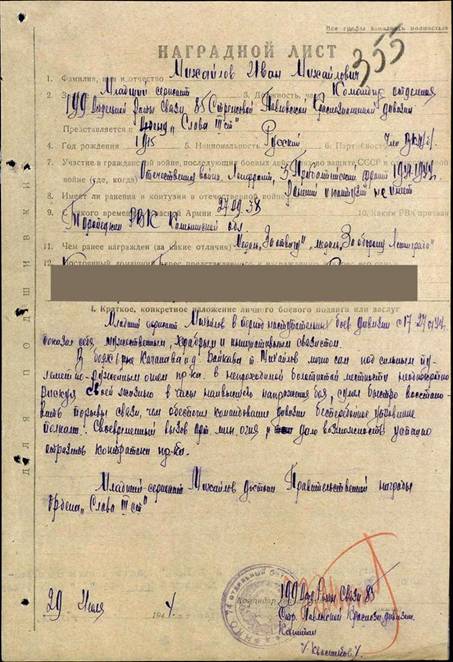 Все графы заполнять полностью
355
НАГРАДНОЙ ЛИСТ
1. Фамилия, имя и отчество Михайлов Иван Михайлович
2. Младший сержант Командир отделения
199 Отдельной Роты Связи 85 Стрелковой Павловской Краснознаменной дивизии
Представляется к Орденa „Слава III ст"
4. Год рождения 1915 5. Национальность Русский 6. Партийность Член ВКП/б/
7. Участие в гражданской войне, последующих боевых действиях по защите СССР и отечественной
войне (где, когда) Отечественная война Ленфронт, 3 Прибалтийский фронт 1941-1944г.
8. Имеет ли ранения и контузии в отечественной войне Ранений и контузий не имеет
9. С какого времени в Красной Армии 27.09.38 10. Каким РВК призван
РВК Калининской обл.
11. Чем ранее награжден (за какие отличия) Медаль „За отвагу" медаль „За оборону Ленинграда"
12
для подшивки
I. Краткое, конкретное изложение личного боевого подвига или заслуг
Младший сержант Михайлов в период наступательных боев дивизии с 17-27.07.44г.
показал себя мужественным, храбрым и инициативным связистом.
В боях у д. Михайлов под сильным пу-
леметно-ружейным огнем пр-ка. в непроходимой болотистой местности неоднократно
рискуя своей жизнью в часы наивысшего напряжения боя, сумел быстро восстано-
вить порывы связи, чем обеспечил командованию дивизии бесперебойное управление
полками. Своевременный вызов арт. мин. огня, дало возможность успешно
отразить контратаки пр-ка.
Младший сержант Михайлов достоин Правительственной награды
Ордена „Слава III ст"
Командир 199 Отд. Роты Связи 85
Стр. Павловской Краснозн. дивизии.
Капитан
29 Июля 1944